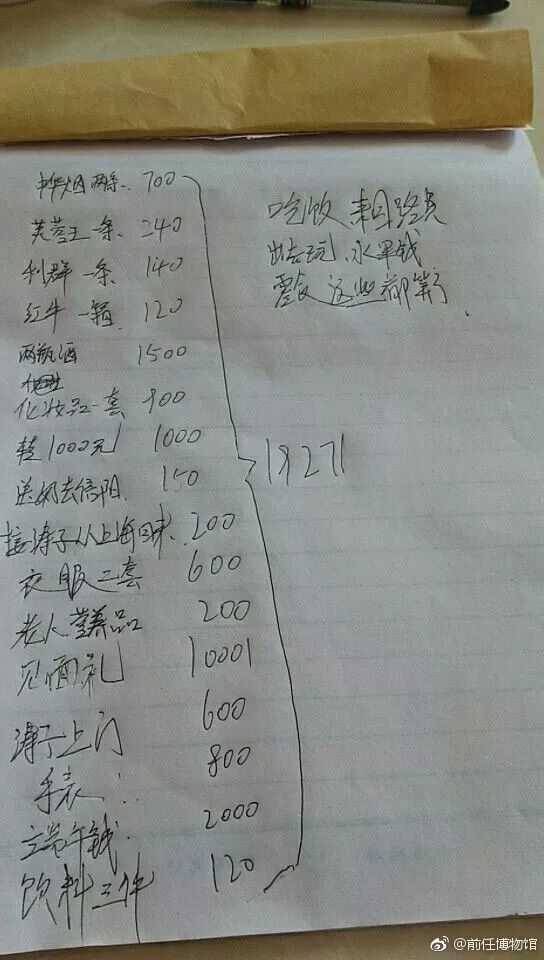 中华烟两条 700
芙蓉王一条 240
利群一条 140
红牛一箱 120
两瓶酒 1500
化妆品一套 900
转1000元 1000
送奶去信阳 150
接涛子从上海回来 200
衣服二套 600
老人营养品 200
见面礼 10001
涛子上门 600
手表: 800
端午钱 2000
饮料三件 120
18271
吃饭 来回路费
出去玩、水果钱
零食 这些都算了.
@前任博物馆